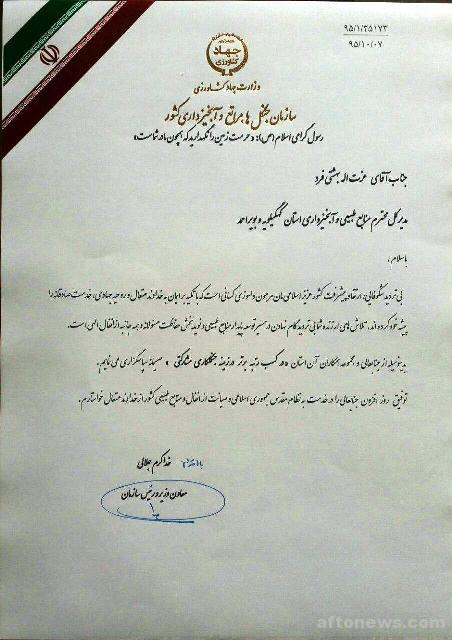 ۹۵/۱/۳۵۱۷۳
۹۵/۱۰/۰۷
جهاد
کشاورزی
وزارت جهاد کشاورزی
سازمان جنگل ها، مراتع و آبخیزداری کشور
رسول گرامی اسلام (ص): «حرمت زمین را نگهدارید که همچون مادر شماست»
جناب آقای عزت اله بهشتی فرد
مدیر کل محترم منابع طبیعی و آبخیزداری استان کهگیلویه و بویراحمد
باسلام،
بی تردید شکوفایی، ارتقاء و پیشرفت کشور عزیز اسلامی مان مرهون دلسوزی کسانی است که با تکیه بر ایمان به خداوند متعال و روحیه جهادی، خدمت صادقانه را
پیشه خود کرده اند. تلاش های ارزنده شما بی تردید گام نهادن در مسیر توسعه پایدار منابع طبیعی و نوید بخش حفاظت مسئولانه و همه جانبه از انفال الهی است.
بدینوسیله از جنابعالی و مجموعه همکاران آن استان «در کسب رتبه برتر در زمینه جنگلکاری مشارکتی» صمیمانه سپاسگزاری می نمایم.
توفیق روز افزون جنابعالی را در خدمت به نظام مقدس جمهوری اسلامی و صیانت از انفال و منابع طبیعی کشور از خداوند متعال خواستارم.
خداکرم جلالی
معاون وزیر و رئیس سازمان
aftonews.com